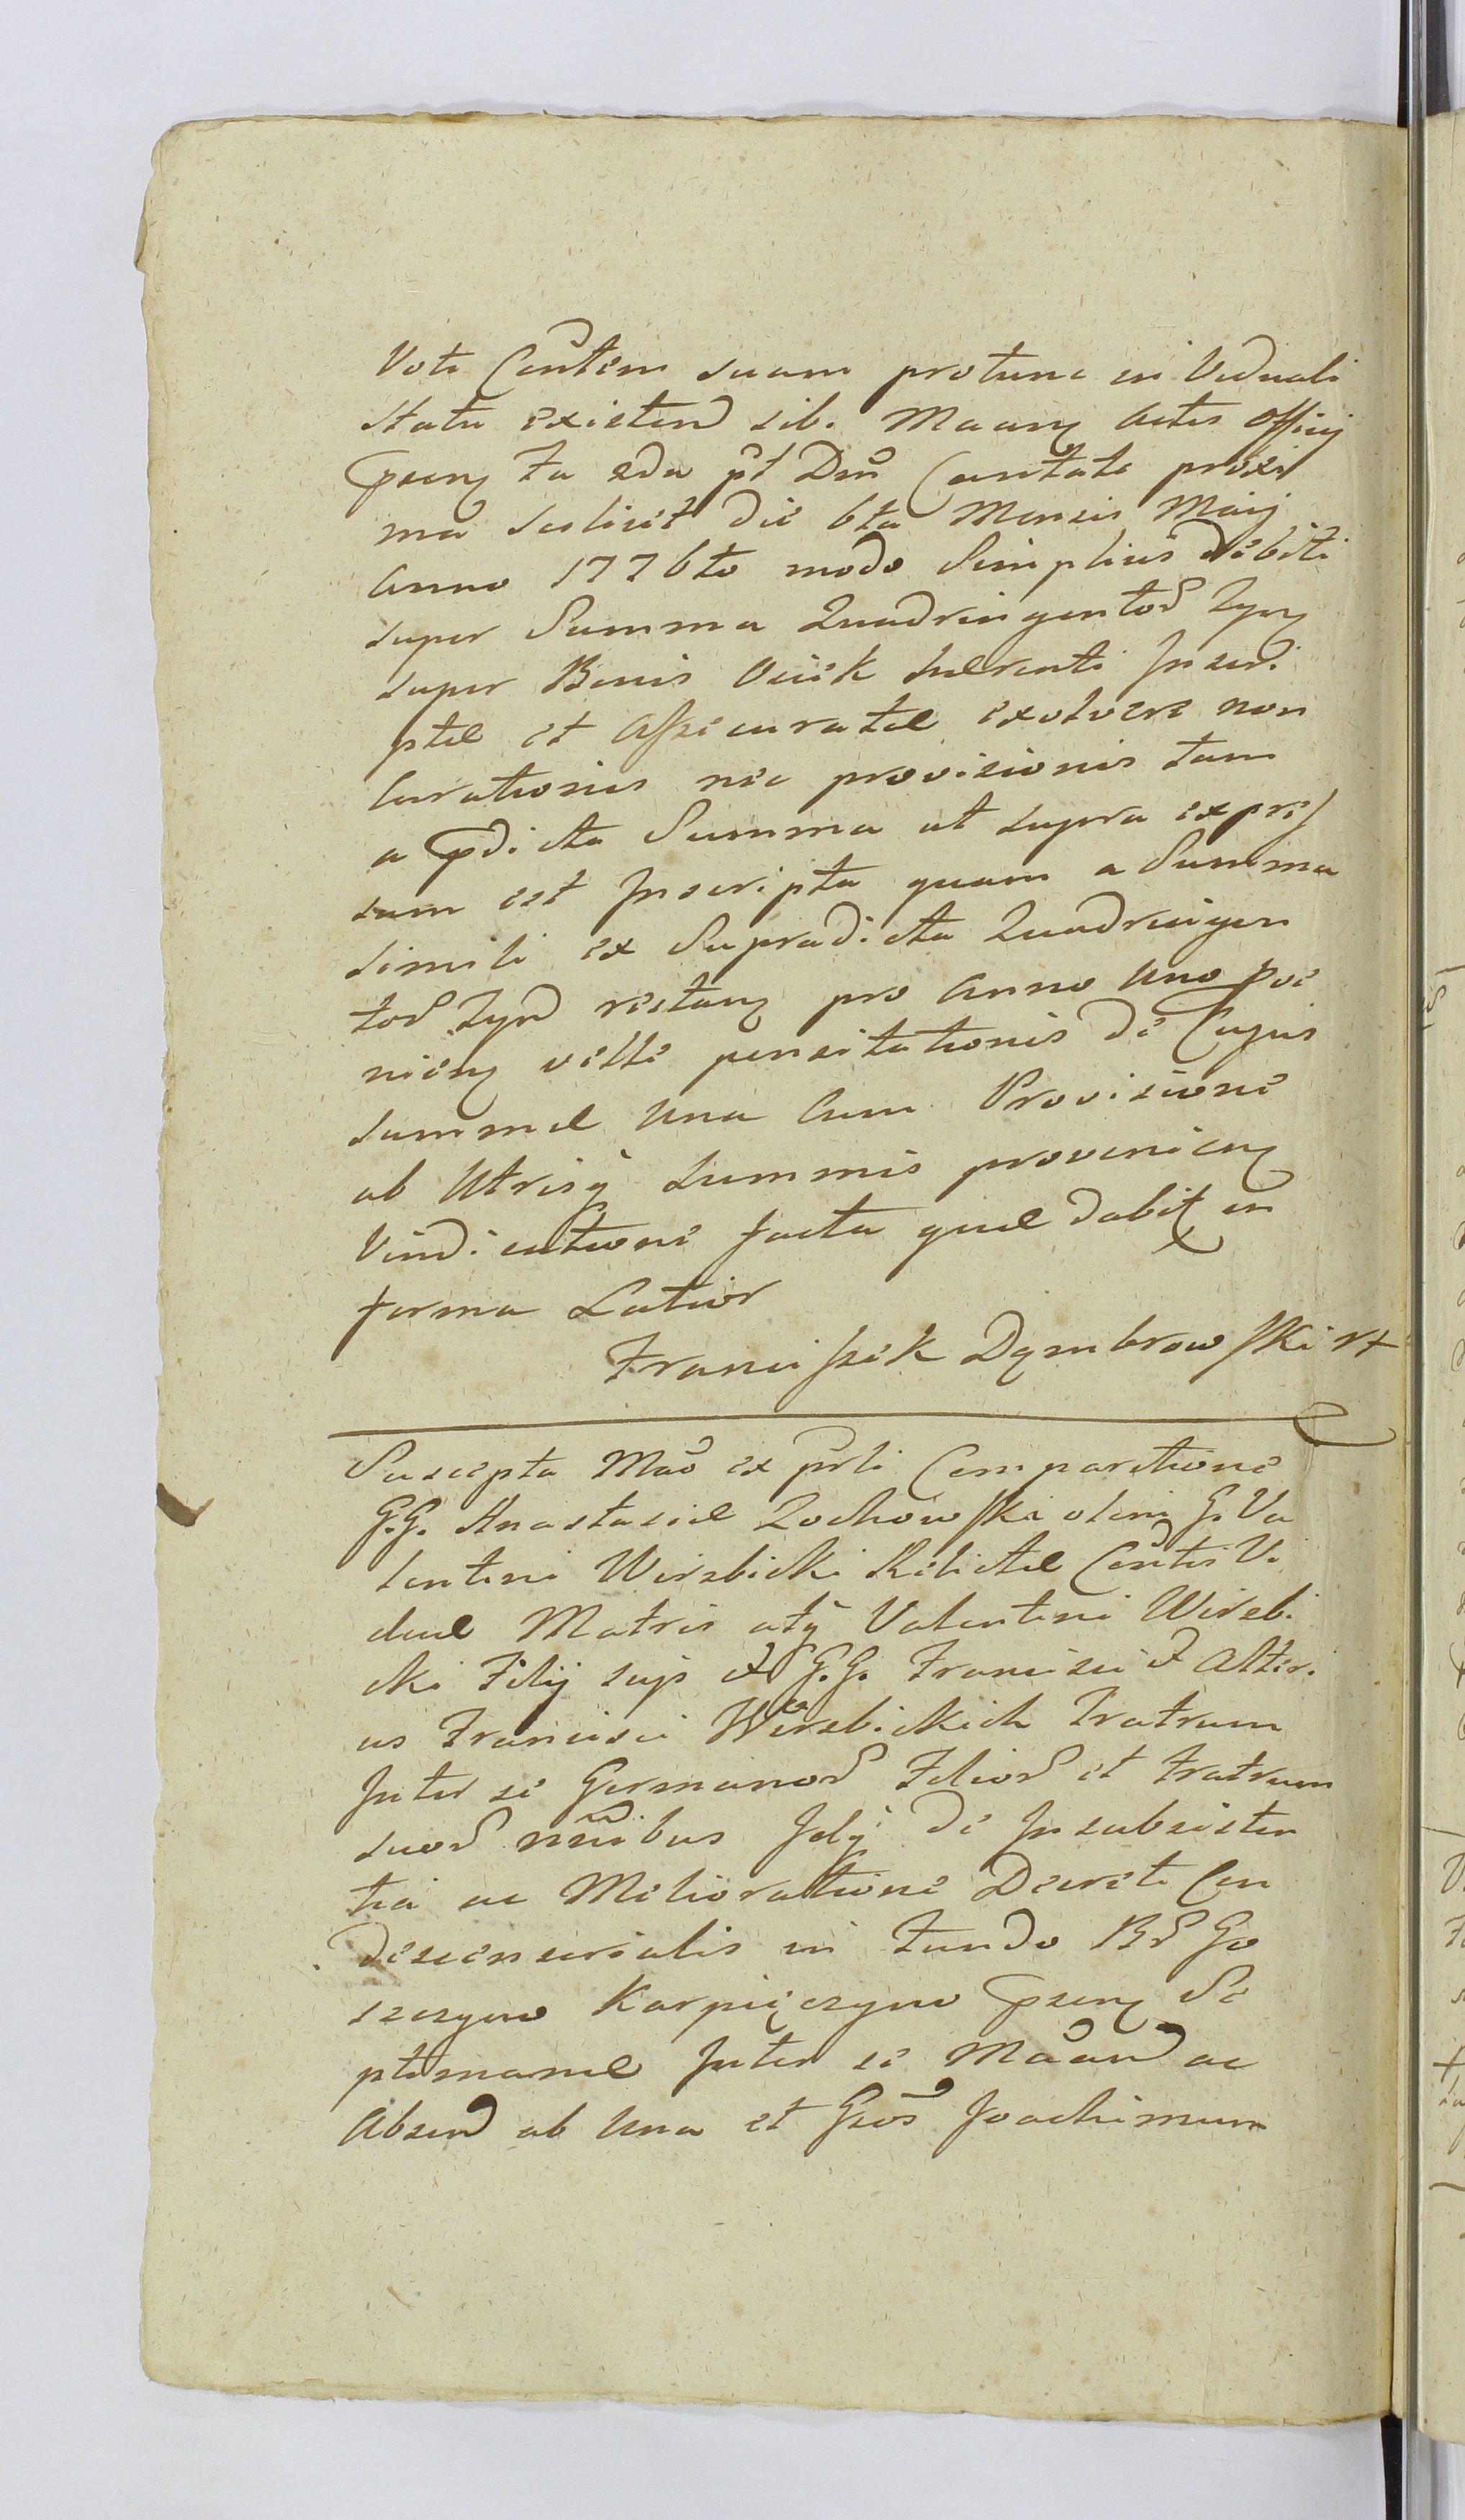 Voti Conĩtem suam protunc in Viduali
Statu existenD sib. Maanŋ Actis Officij
pseny Fa 2da pt Dm̃ Cantate proxi
ma scilicet die 6ta Mensis Maij
Anno 1776to modo Simplicis debiti
super Summa Quadringentor̃ Zyny
super Bonis Osiek haerenti Inscri
ptae et Assecuratae exolvere non
curationis nec provisionis tam
a pdicta Summa ut supra expres
sum est Inscripta quam a Summa
simili ex Supradicta Quadringen
tor̃ Zyn̄ restanŋ pro Anno Uno pve
nienŋ velle pensitationis de Cujus
summae Una Cum Provisione
ab Utrisq̃ summis provenienŋ
Vindicatione facta quae dabit̃ in
forma Latior
Franciszek Dąmbrowski
Suscepta Mao ex pñti Comparitione
G.G. Anastasiae Zochowski olim G. Va
lentini Wirzbicki Relictae Conĩtis Vi
duae Matris atq̃ Valentini Wirzbi
cki Filij sujs et G.G. Francisci et Alteri
us Francisci Wirzbickich Fratrum
Inter se Germanor̃ Filior̃ et Fratrum
suor̃ nñibus Idq̃ de Insubsisten
tia ac Melioratione Decreti Con
descensorialis in Fundo Br̃ Go
szczyno Karpięczyno pseny Se
ptimanae Inter se MaanD ac
AbsenD ab Una et Gsos Joachimum